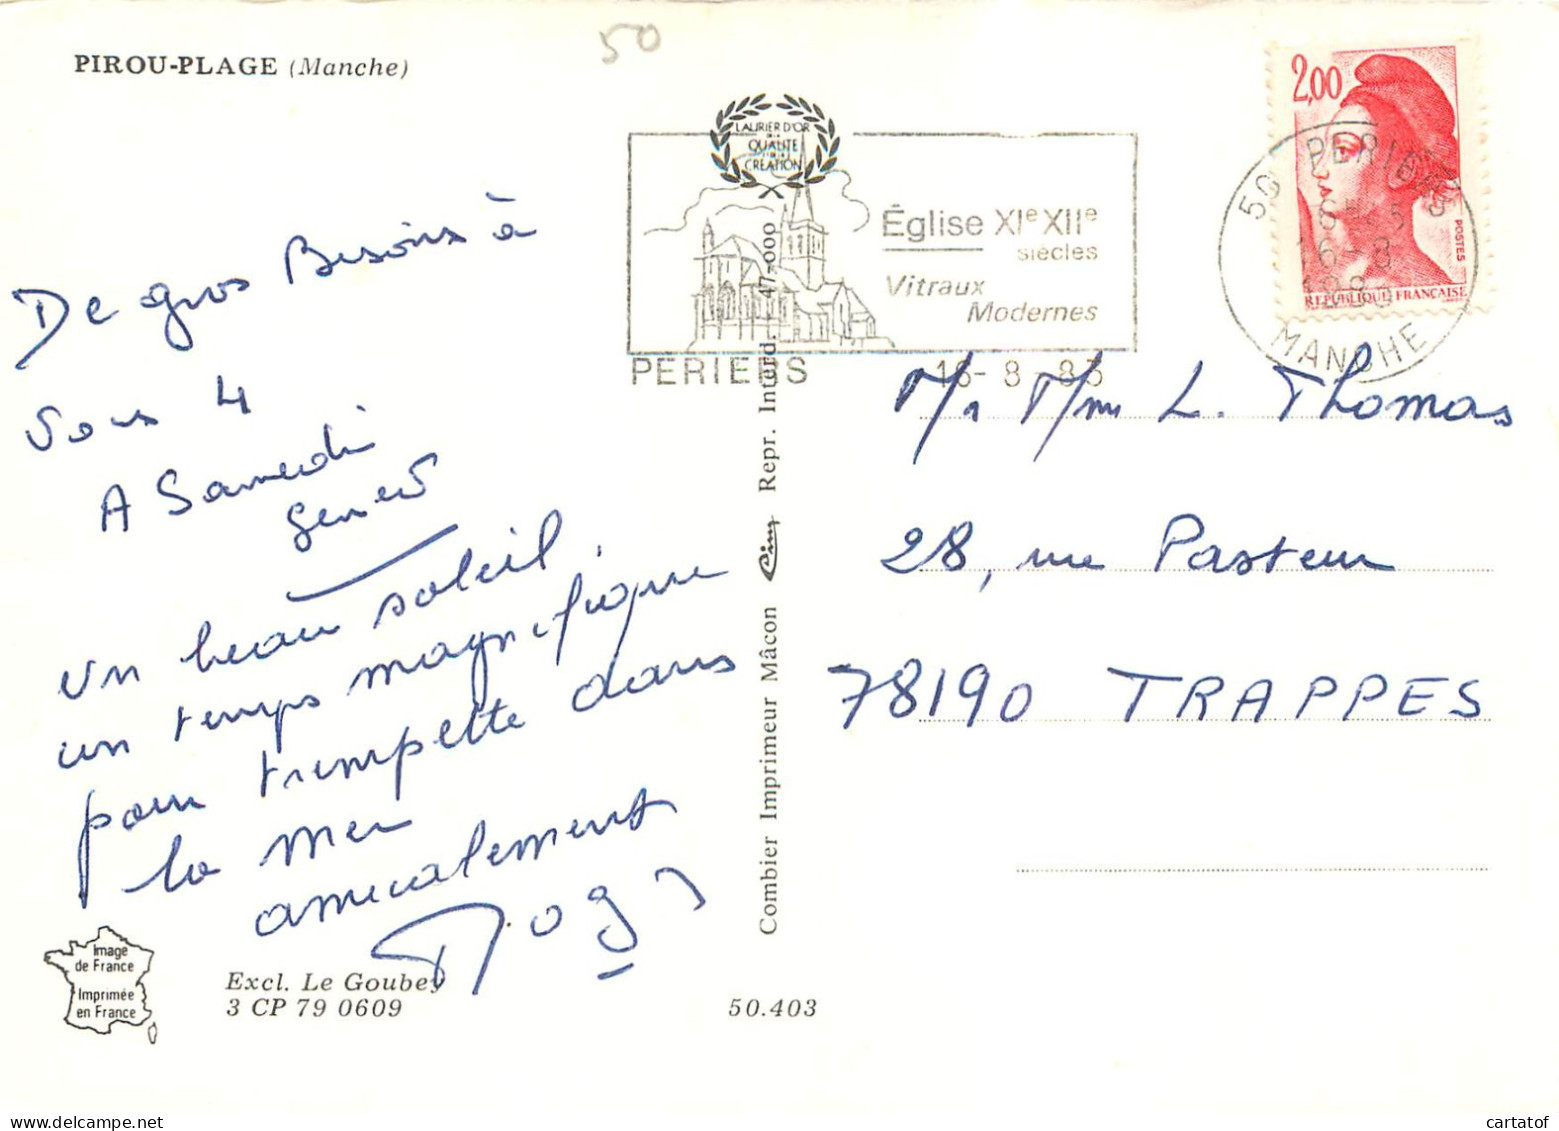 50
PIROU-PLAGE (Manche)
LAURIER D'OR
DE LA
QUALITÉ
CRÉATION
Église XIe XIIe
siècles
Vitraux
Modernes
PERIERS
16-8-83
2,00
POSTES
REPUBLIQUE FRANÇAISE
50 PERIERS
16-8
MANCHE
De gros Besoins à
vous 4
A Samedi
Un beau soleil
un temps magnifique
pour trempette dans
la mer
amicalement
Image
de France
Imprimée
en France
Excl. Le Goubey
3 CP 79 0609
50.403
Combier Imprimeur Mâcon Cim Repr. Interd. 47-000
Mr Mme L. Thomas
28, rue Pasteur
78190 TRAPPES
cartatof